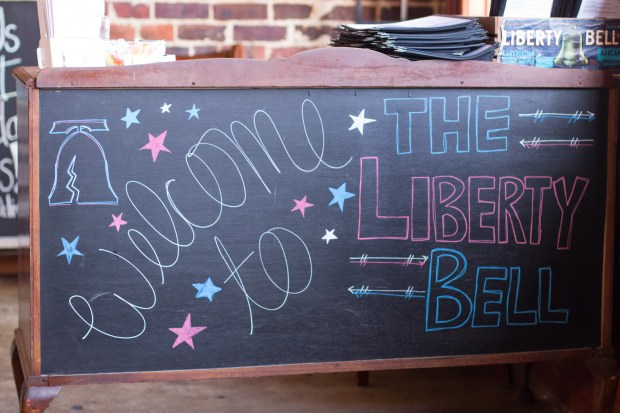 LIBERTY BELL
Welcome
to
THE
LIBERTY
BELL